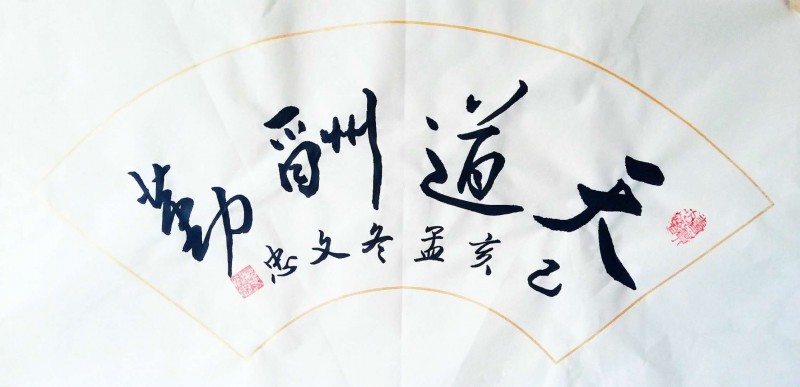 天道酬勤
己亥孟冬文忠